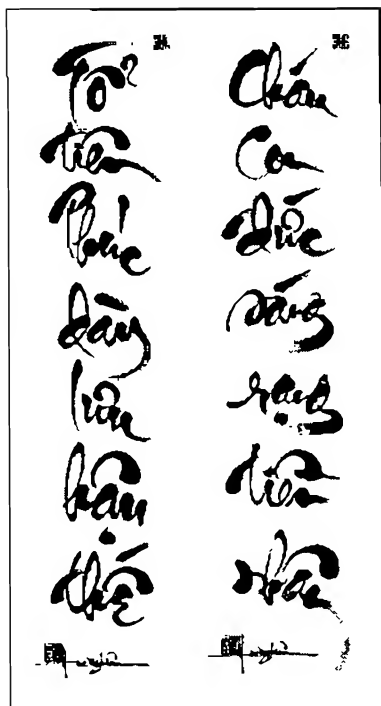 Tổ tiên Phúc dày lưu hậu thế
Cháu Con đức sáng rạng tiền nhân